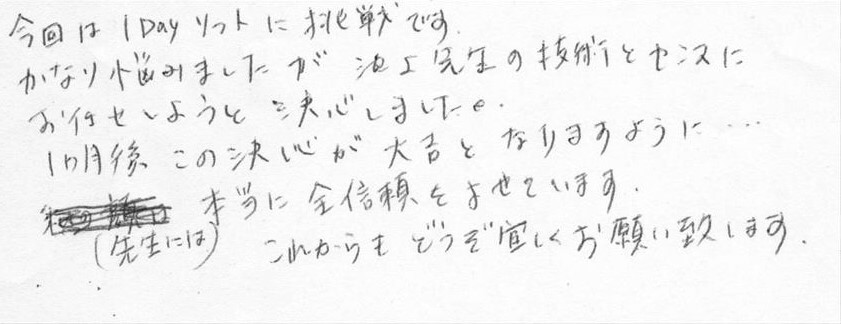 今回は 1Day リフトに挑戦です.
かなり悩みましたが 池上先生の技術とセンスに
お任せしようと決心しました。
1ヶ月後 この決心が 大吉となりますように…
本当に 全信頼をよせています.
(先生には) これからも どうぞ宜しくお願い致します.